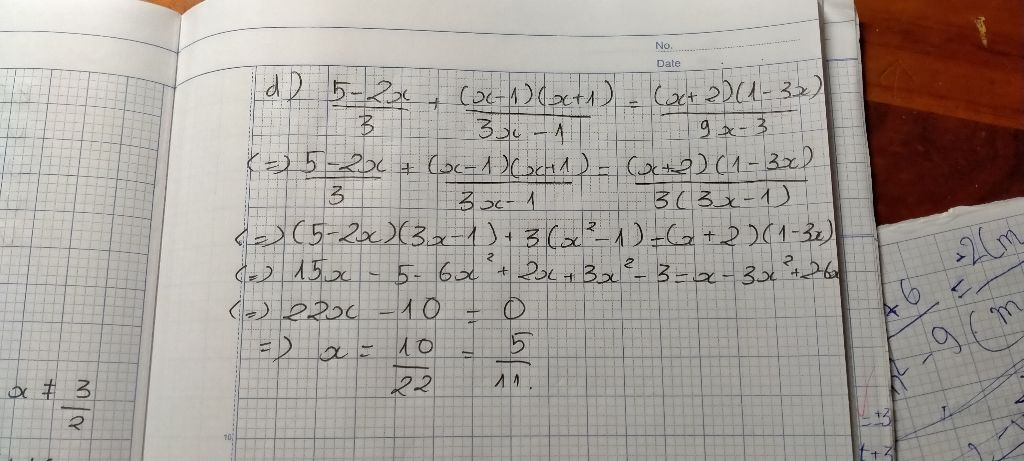 No.
Date
d) (5-2x)/3 + (x-1)(x+1)/(3x-1) = (x+2)(1-3x)/(9x-3)
(=) (5-2x)/3 + (x-1)(x+1)/(3x-1) = (x+2)(1-3x)/(3(3x-1))
(=) (5-2x)(3x-1) + 3(x²-1) = (x+2)(1-3x)
(=) 15x - 5 - 6x² + 2x + 3x² - 3 = x - 3x² + 2-6x
(=) 22x - 10 = 0
=) x = 10/22 = 5/11.
x ≠ 3/2
10